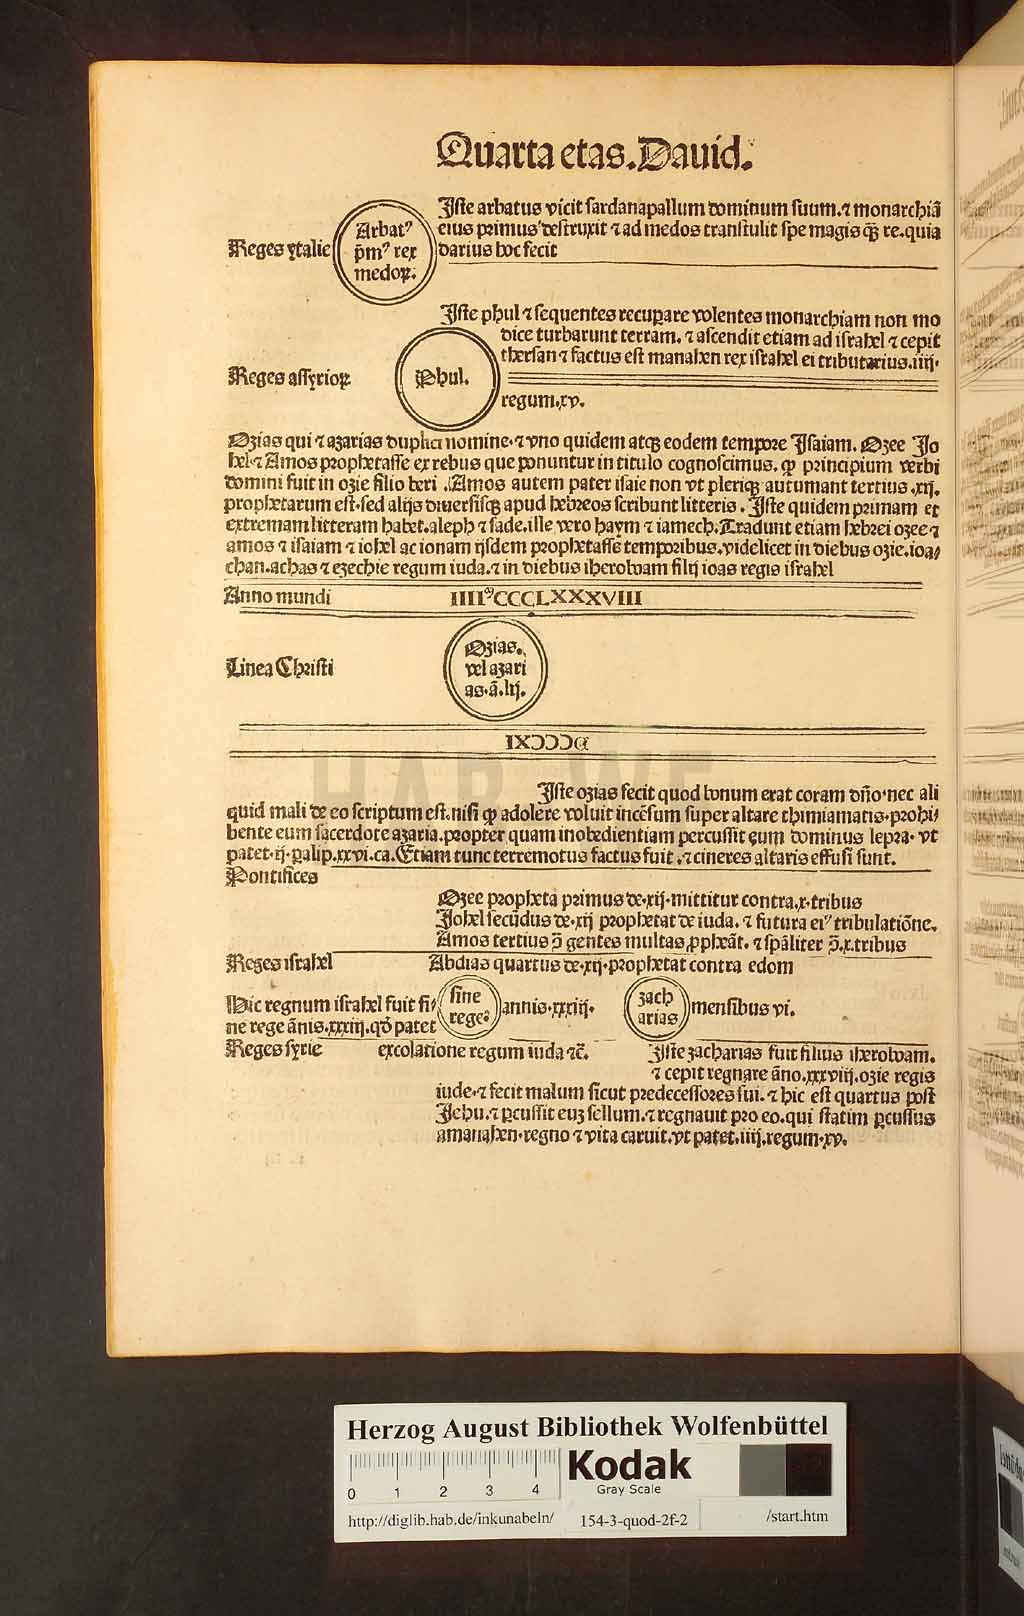 Quarta etas. Dauid.
Iste arbatus vicit sardanapallum dominum suum. ⁊ monarchiā
eius primus destruxit ⁊ ad medos transtulit spe magis q̄ꝫ re. quia
darius hoc fecit
Reges ytalie
Arbatꝰ
pͥmꝰ rex
medoꝝ.
Iste phul ⁊ sequentes recuꝑare volentes monarchiam non mo
dice turbarunt terram. ⁊ ascendit etiam ad israhel ⁊ cepit
thersan ⁊ factus est manahen rex israhel ei tributarius. iiij.
Reges assyrioꝝ
Phul.
regum. xv.
Ozias qui ⁊ azarias duplici nomine. ⁊ vno quidem atqꝫ eodem tempore Isaiam. Ozee Jo
hel ⁊ Amos prophetasse ex rebus que ponuntur in titulo cognoscimus. ꝙ principium verbi
domini fuit in ozie filio beri. Amos autem pater isaie non vt pleriqꝫ autumant tertius .xij.
prophetarum est. sed alijs diuersisqꝫ apud hebreos scribunt litteris. Iste quidem primam et
extremam litteram habet. aleph ⁊ sade. ille vero haym ⁊ iamech. Tradunt etiam hebrei ozee ⁊
amos ⁊ isaiam ⁊ iohel ac ionam ijsdem prophetasse temporibus. videlicet in diebus ozie. ioa/
chan. achas ⁊ ezechie regum iuda. ⁊ in diebus iheroboam filij ioas regis israhel
Anno mundi IIIIꝰCCCCLXXXVIII
Linea Christi
Ozias.
vel azari
as. ā. lij.
DCCCCXI
Iste ozias fecit quod bonum erat coram dño. nec ali
quid mali de eo scriptum est. nisi ꝙ adolere voluit incēsum super altare thimiamatis. prohi/
bente eum sacerdote azaria. propter quam inobedientiam percussit eum dominus lepra. vt
patet. ij. palip. xxvi. ca. Etiam tunc terremotus factus fuit. ⁊ cineres altaris effusi sunt.
Pontifices
Ozee propheta primus de. xij. mittitur contra. x. tribus
Johel secūdus de. xij prophetat de iuda. ⁊ futura eiꝰ tribulatiōne.
Amos tertius ꝯ̄ gentes multas ꝓpheāt. ⁊ spāliter ꝯ̄. x. tribus
Reges israhel Abdias quartus de. xij. prophetat contra edom
Hic regnum israhel fuit si/
ne rege ānis. xxxiij. qd̄ patet
sine
rege.
annis. xxxiij.
zach
arias
mensibus vi.
Reges syrie excolatione regum iuda ⁊c̄. Iste zacharias fuit filius iheroboam.
⁊ cepit regnare āno. xxxviij. ozie regis
iude. ⁊ fecit malum sicut predecessores sui. ⁊ hic est quartus post
Jehu. ⁊ ꝑcussit euꝫ sellum. ⁊ regnauit pro eo. qui statim ꝑcussus
a manahen. regno ⁊ vita caruit. vt patet. iiij. regum. xv.
HAB WF
Herzog August Bibliothek Wolfenbüttel
0 1 2 3 4
Kodak
Gray Scale
http://diglib.hab.de/inkunabeln/ 154-3-quod-2f-2 /start.htm